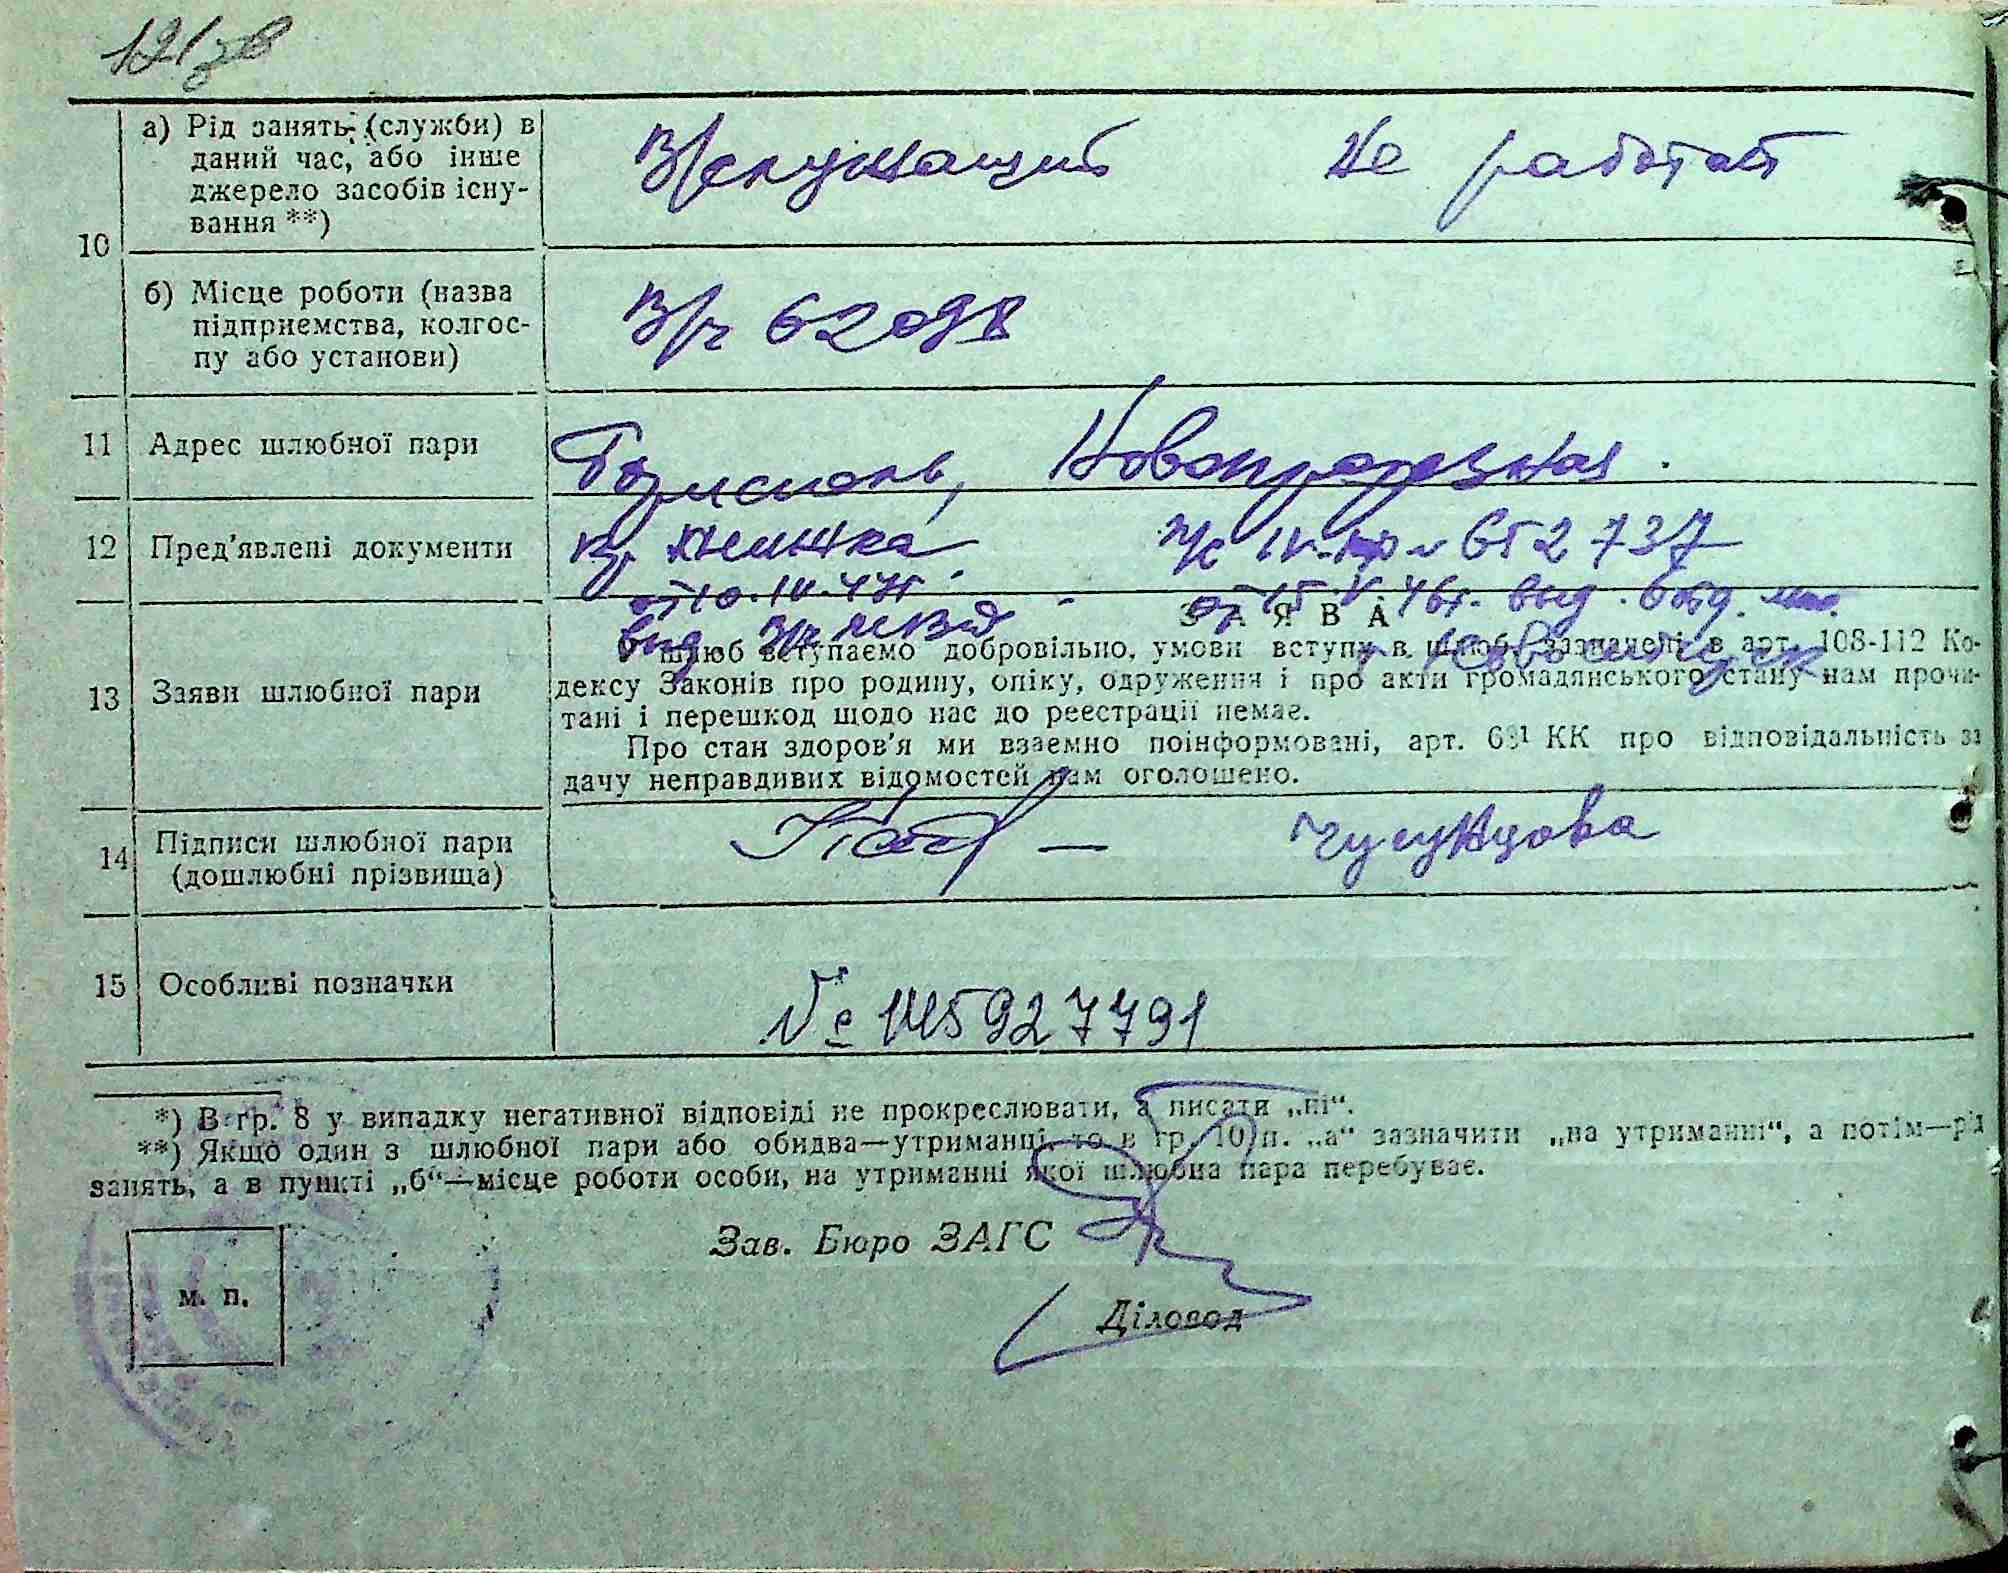 121зв
10
а) Рід занять (служби) в
даний час, або інше
джерело засобів існу-
вання **)
В/служащий Не работает
б) Місце роботи (назва
підприємства, колгос-
пу або установи)
В/ч 62098
11 Адрес шлюбної пари
12 Пред'явлені документи
Кр. книжка п/с 652737
от 10.IV.47г. от 15.V.46г. выд.
выд. В/ч
13 Заяви шлюбної пари
ЗАЯВА
У шлюб вступаємо добровільно, умови вступу в шлюб, зазначені в арт. 108-112 Ко-
дексу Законів про родину, опіку, одруження і про акти громадянського стану нам прочи-
тані і перешкод щодо нас до реєстрації немає.
Про стан здоров'я ми взаємно поінформовані, арт. 68¹ КК про відповідальність за
дачу неправдивих відомостей нам оголошено.
14 Підписи шлюбної пари
(дошлюбні прізвища)
15 Особливі позначки
№ 145927791
*) В гр. 8 у випадку негативної відповіді не прокреслювати, а писати „ні“.
**) Якщо один з шлюбної пари або обидва—утриманці, то в гр. 10 п. „а“ зазначити „на утриманні“, а потім—рід
занять, а в пункті „б“—місце роботи особи, на утриманні якої шлюбна пара перебуває.
Зав. Бюро ЗАГС
м. п.
Діловод